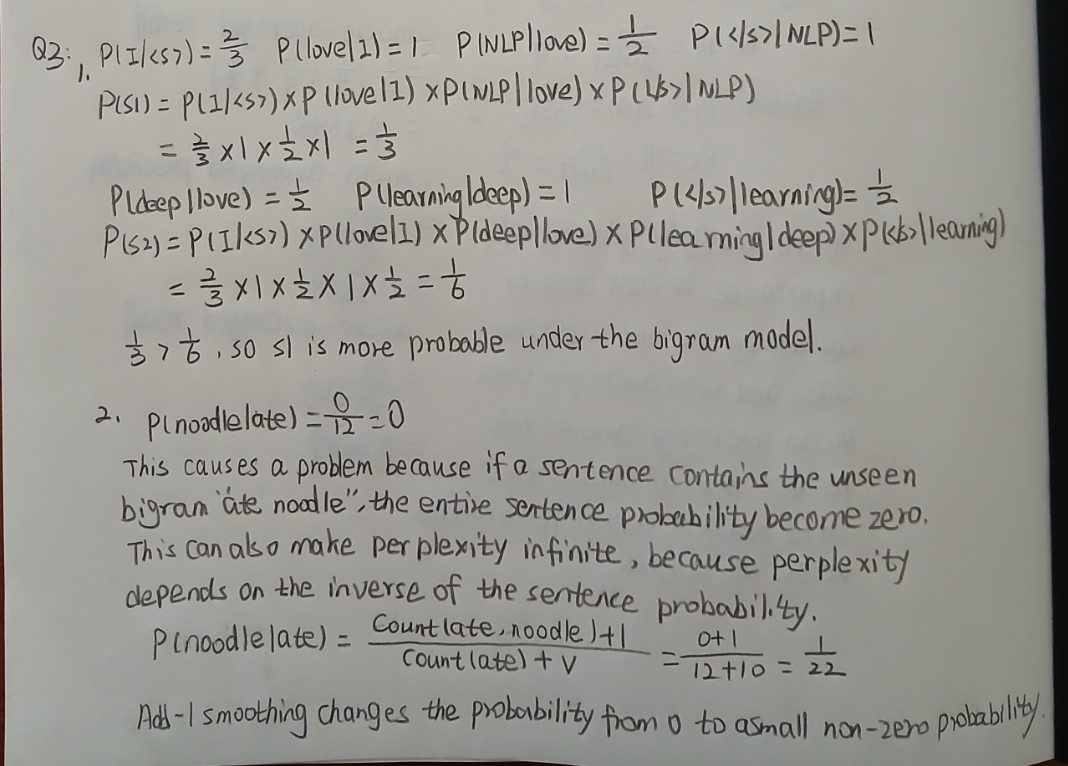 Q3: 1. P(I|<s>) = 2/3 P(love|I) = 1 P(NLP|love) = 1/2 P(</s>|NLP) = 1
P(S1) = P(I|<s>) × P(love|I) × P(NLP|love) × P(</s>|NLP)
= 2/3 × 1 × 1/2 × 1 = 1/3
P(deep|love) = 1/2 P(learning|deep) = 1 P(</s>|learning) = 1/2
P(S2) = P(I|<s>) × P(love|I) × P(deep|love) × P(learning|deep) × P(</s>|learning)
= 2/3 × 1 × 1/2 × 1 × 1/2 = 1/6
1/3 > 1/6, so S1 is more probable under the bigram model.
2. P(noodle|ate) = 0/12 = 0
This causes a problem because if a sentence contains the unseen
bigram "ate noodle", the entire sentence probability become zero.
This can also make perplexity infinite, because perplexity
depends on the inverse of the sentence probability.
P(noodle|ate) = Count(ate, noodle)+1 / Count(ate) + V = 0+1 / 12+10 = 1/22
Add-1 smoothing changes the probability from 0 to a small non-zero probability.